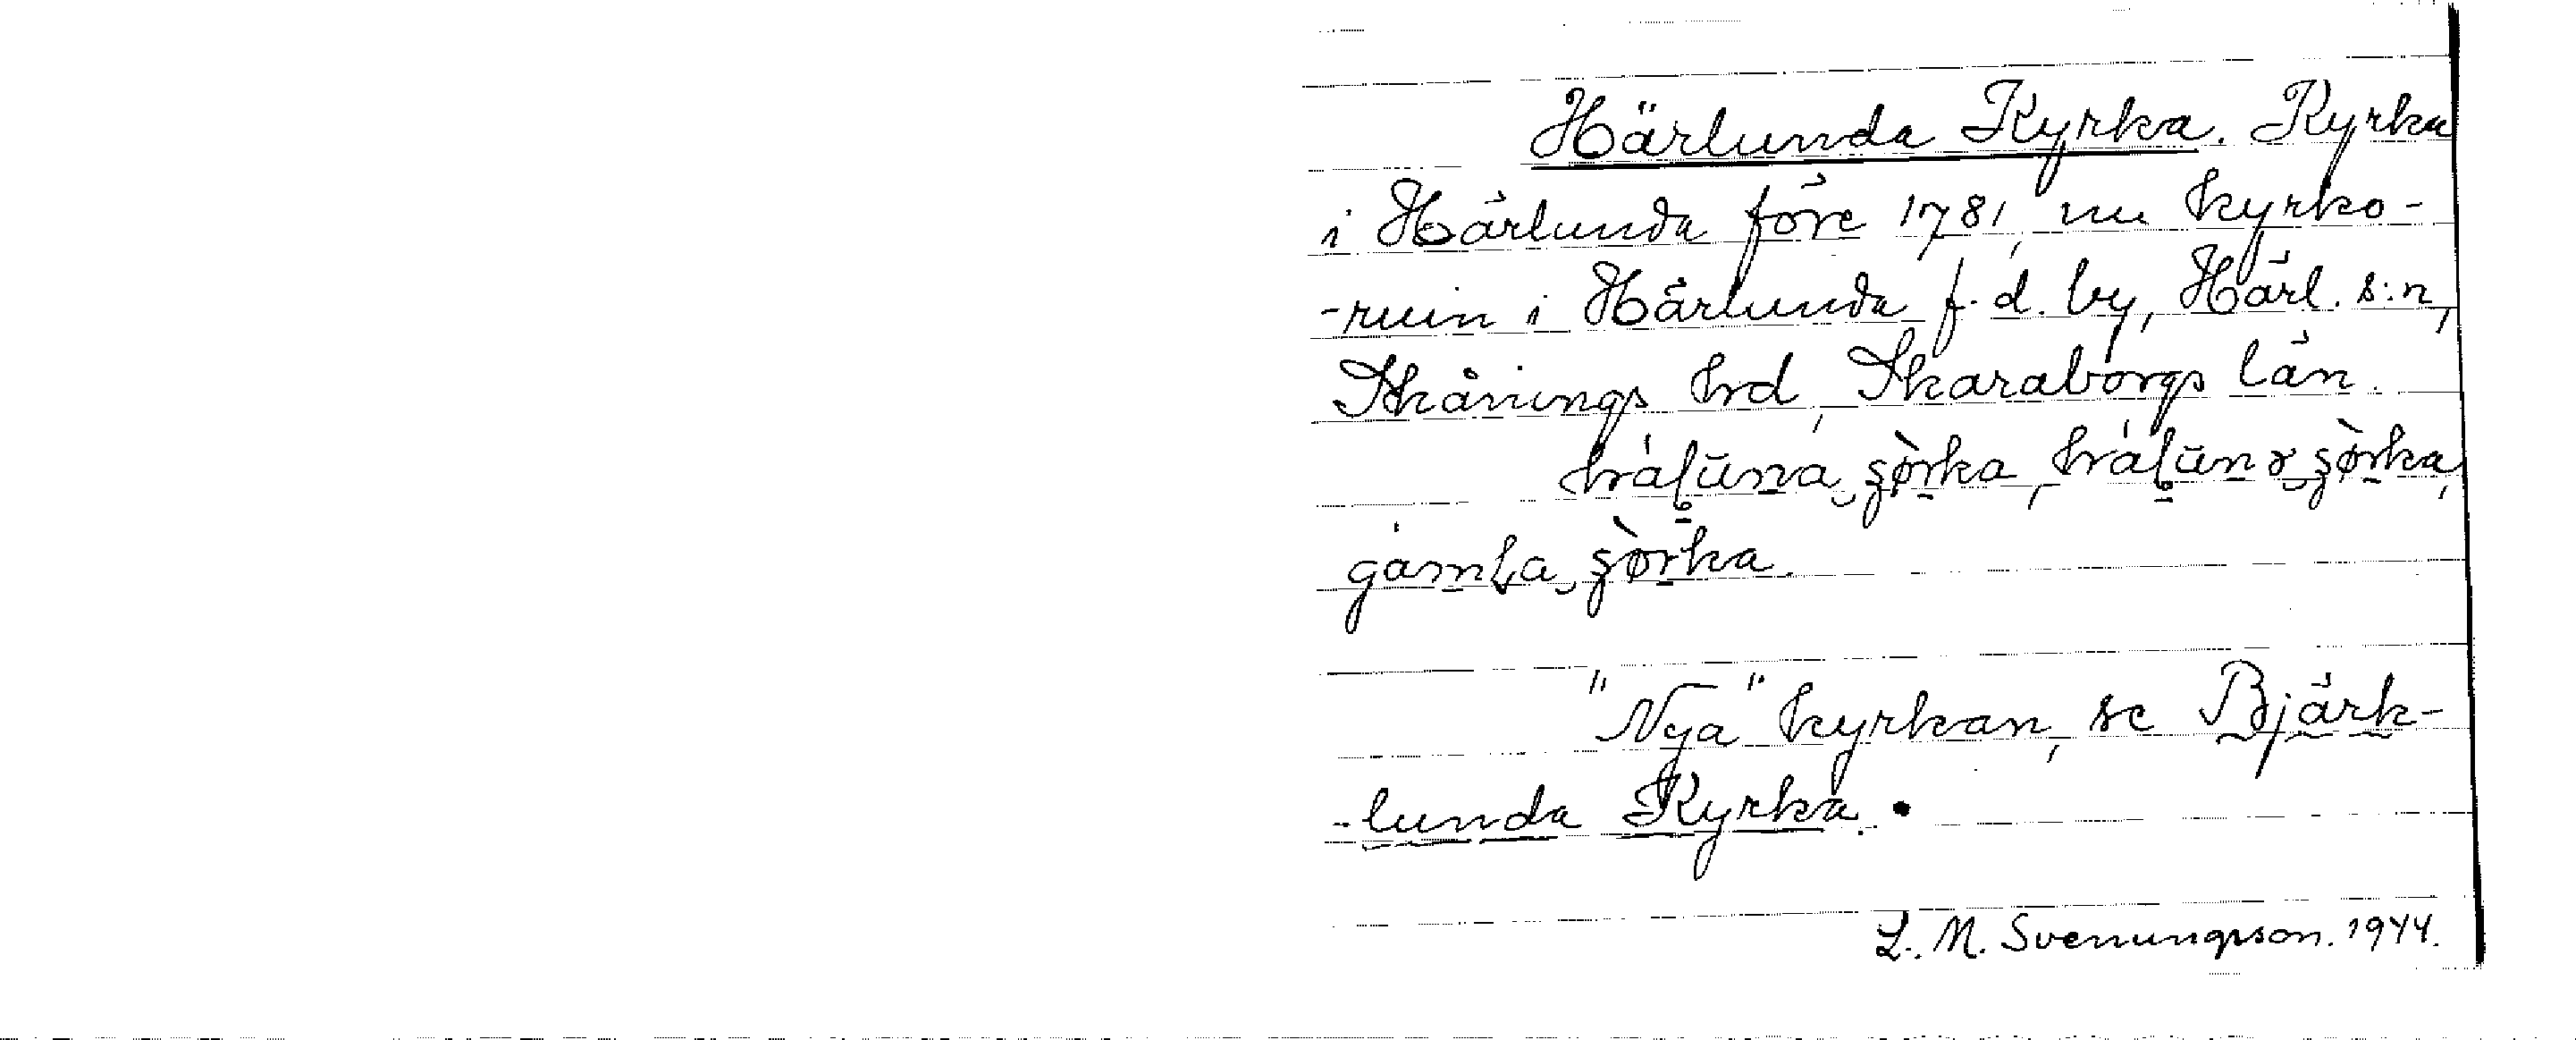 Härlunda Kyrka. Kyrka
i Härlunda före 1781, nu kyrko-
-ruin i Härlunda f. d. by, Härl. s:n,
Skånings hrd, Skaraborgs län.
gamla
"Nya" kyrkan, se Bjärk-
-lunda Kyrka.
L. M. Svenungsson. 1944.